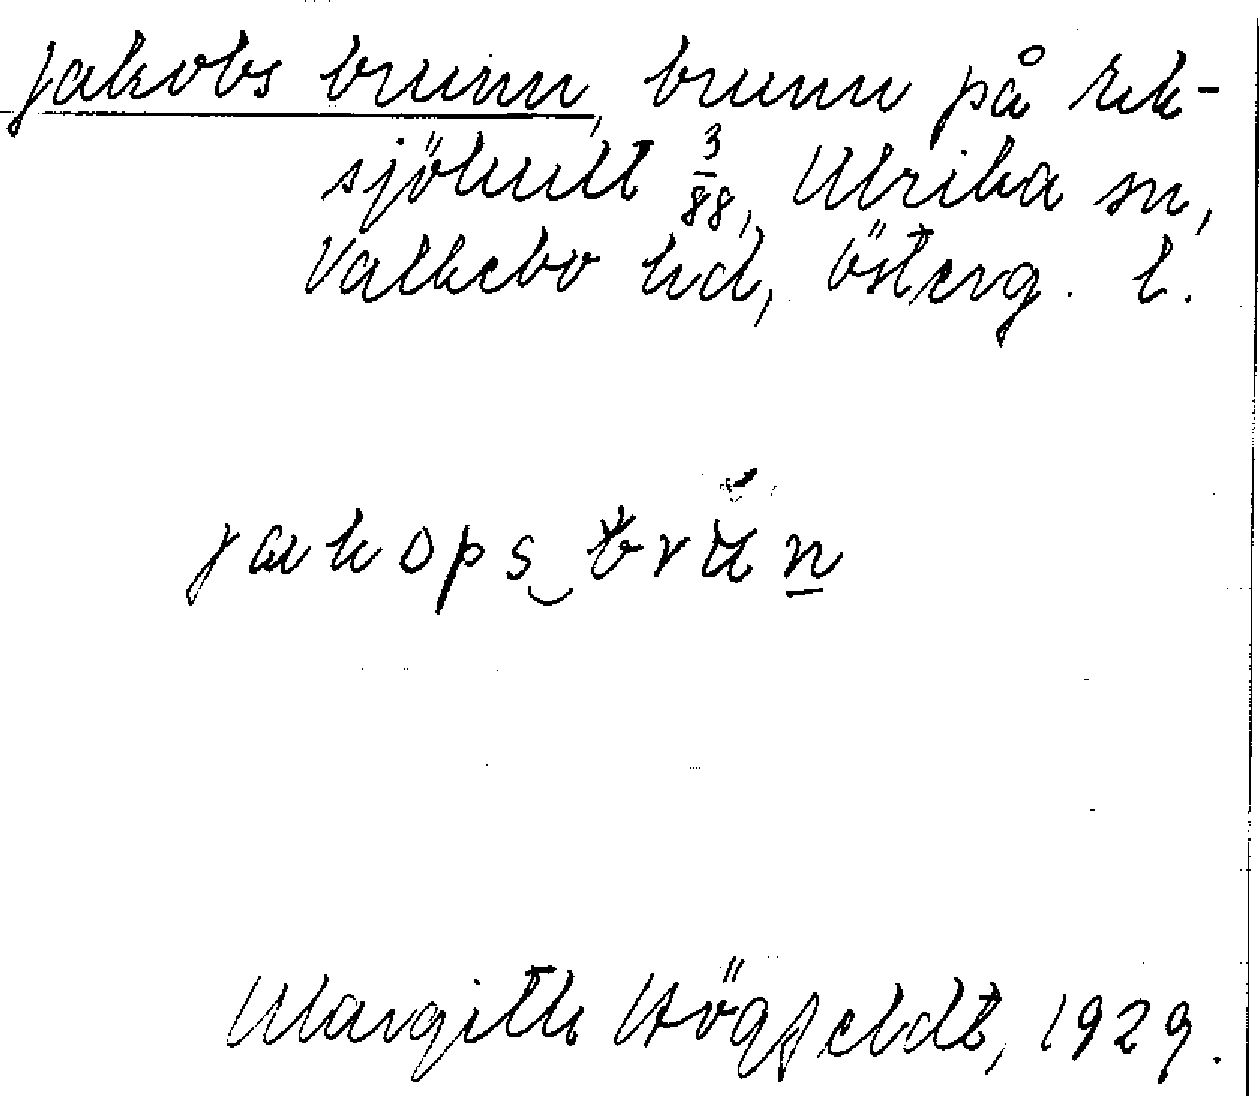 Jakobs brunn, brunn på Ek-
sjöhult 3/88, Ulrika sn,
Valkebo hd, Österg. l.
jakops brun
Margith Högfeldt, 1929.